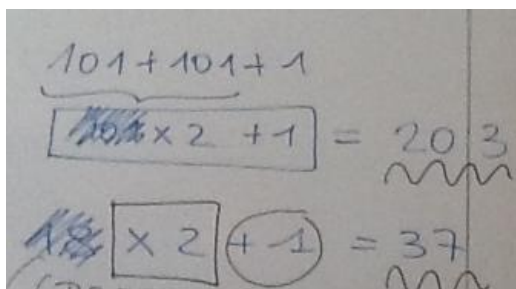 101+101+1
101 × 2 +1 = 203
18 × 2 +1 = 37